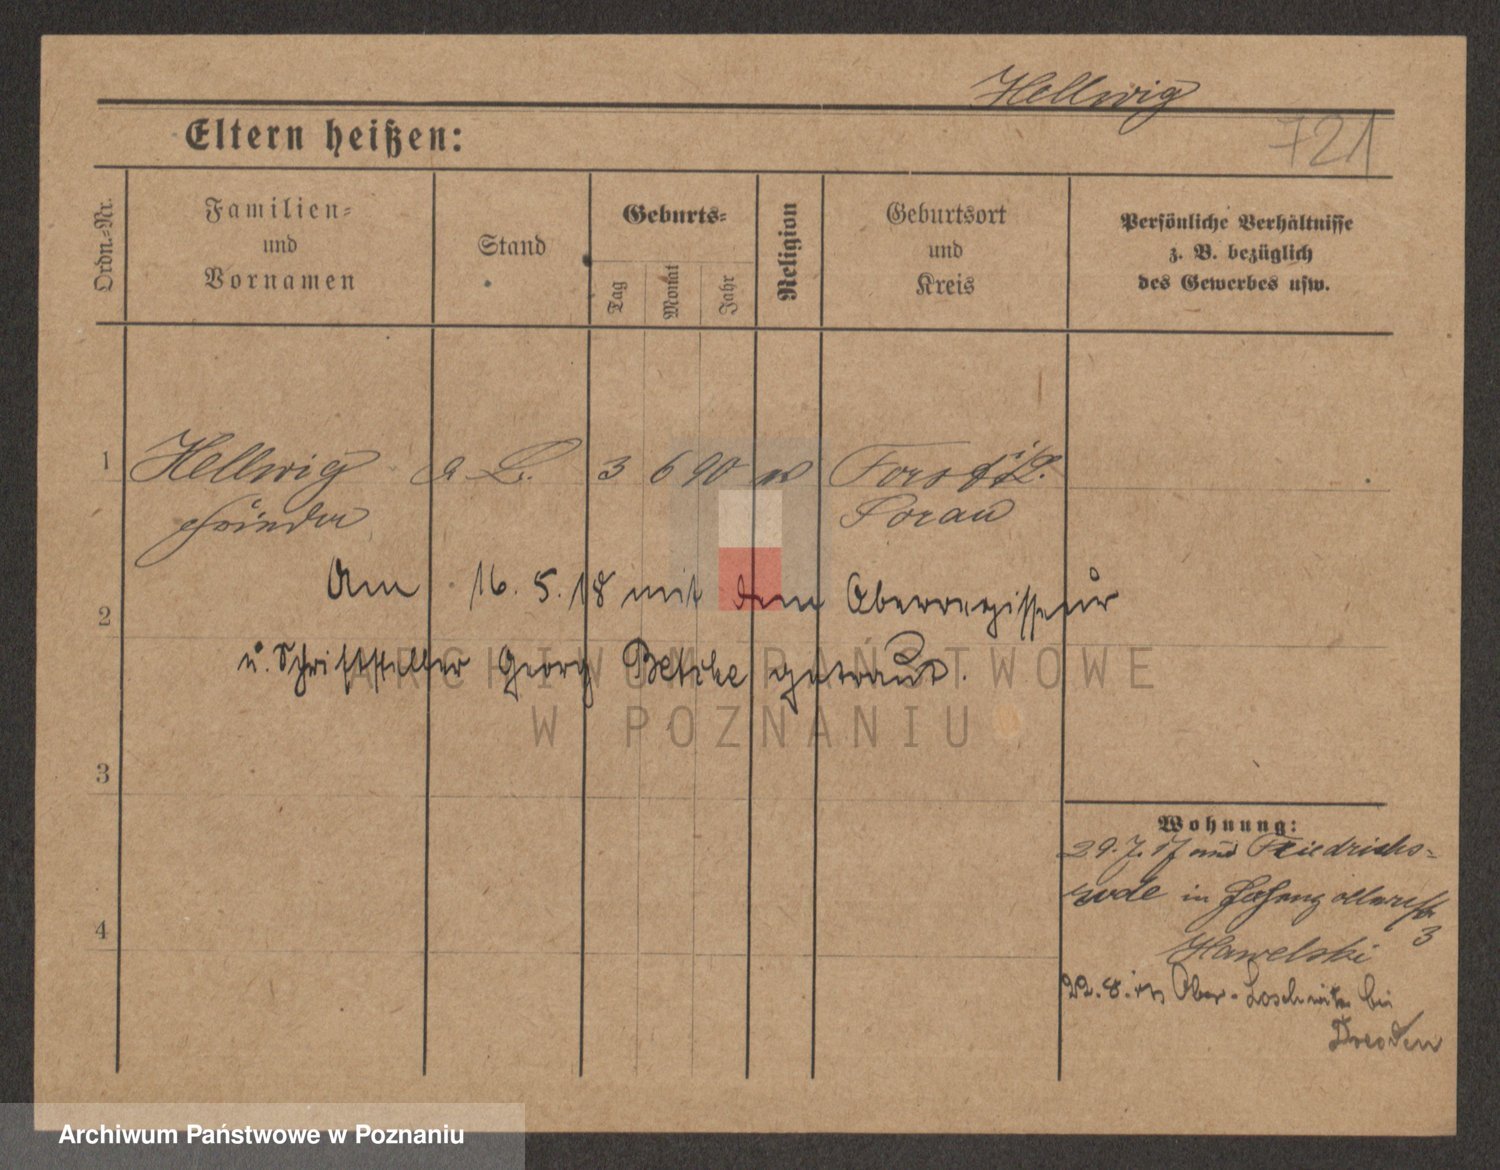 Hellwig
Eltern heißen:
721
Ordn.-Nr.
Familien-
und
Vornamen
Stand
Geburts-
Tag
Monat
Jahr
Religion
Geburtsort
und
Kreis
Persönliche Verhältnisse
z. B. bezüglich
des Gewerbes usw.
1 Hellwig 3 6 90 Forst i. L.
Frieda Sorau
Am 16. 5. 18 mit dem Oberregisseur
2
u. Schriftsteller Georg getraut.
ARCHIWUM PAŃSTWOWE
W POZNANIU
3
Wohnung:
29. 7. 17 aus Friedrichs-
rode in
4
3
Hawelski
22. 8. in Ober-Loschwitz bei
Dresden
Archiwum Państwowe w Poznaniu